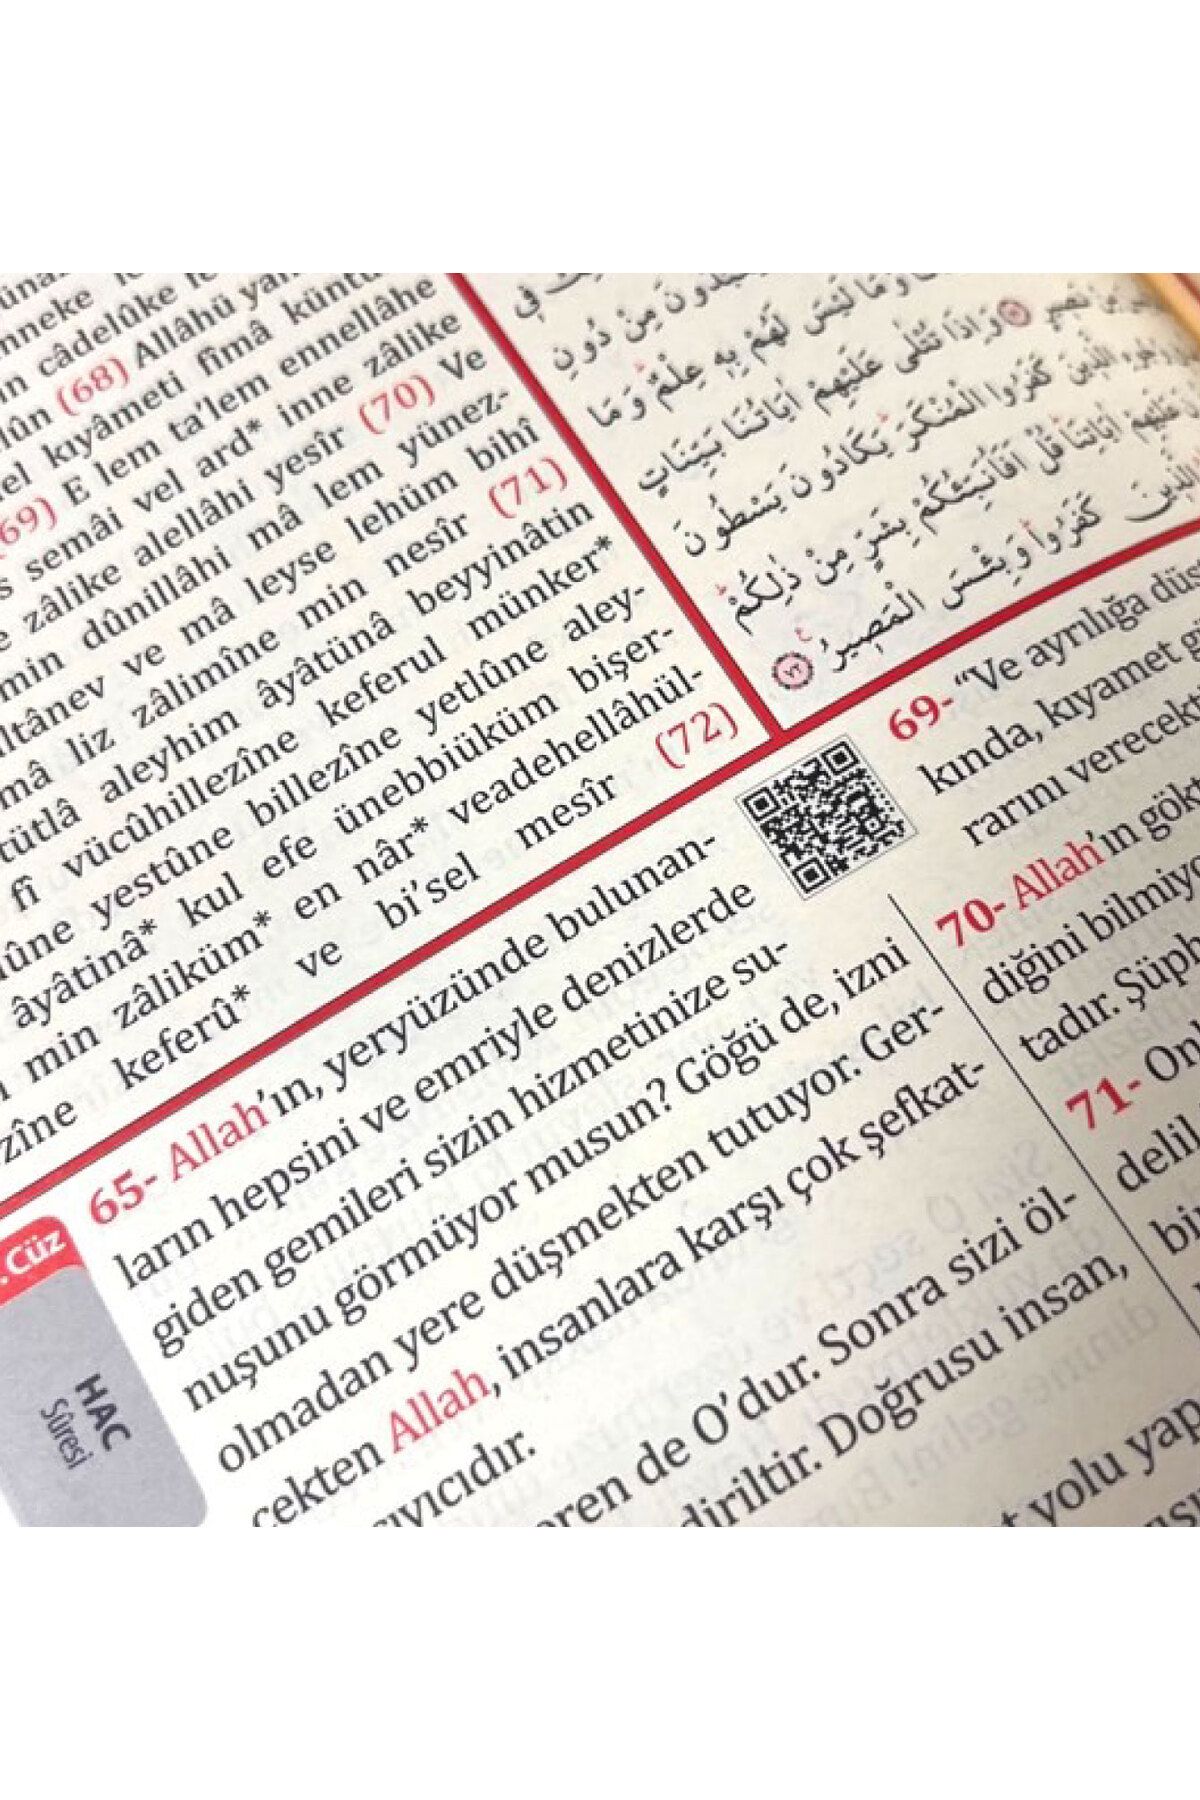 nneke
in câdelûke
lûn (68) Allâhü
kıyâmeti fîmâ küntü
(69) E lem ta'lem ennellâhe
semâi vel ard* inne zâlike
zâlike alellâhi yesîr (70) Ve
min dûnillâhi mâ lem yünez-
ltânev ve mâ leyse lehüm bihî
mâ liz zâlimîne min nesîr (71)
tütlâ aleyhim âyâtünâ beyyinâtin
fî vücûhillezîne keferul münker*
ûne yestûne billezîne yetlûne aley-
âyâtinâ* kul efe ünebbiüküm bişer-
min zâliküm* en nâr* veadehellâhül-
zîne keferû* ve bi'sel mesîr (72)
دُونَ مِنْ دُونِ
وَمَا لَيْسَ لَهُمْ بِهِ عِلْمٌ وَمَا
وَاِذَا تُتْلٰى عَلَيْهِمْ اٰيَاتُنَا بَيِّنَاتٍ
الَّذِينَ كَفَرُوا الْمُنْكَرَ يَكَادُونَ يَسْطُونَ
عَلَيْهِمْ اٰيَاتِنَا قُلْ اَفَاُنَبِّئُكُمْ بِشَرٍّ مِنْ ذٰلِكُمْ
الَّذِينَ كَفَرُوا وَبِئْسَ الْمَصِيرُ ﴿٧٢﴾
.Cüz
HAC
Sûresi
65- Allah'ın, yeryüzünde bulunan-
ların hepsini ve emriyle denizlerde
giden gemileri sizin hizmetinize su-
nuşunu görmüyor musun? Göğü de, izni
olmadan yere düşmekten tutuyor. Ger-
çekten Allah, insanlara karşı çok şefkat-
ıyıcıdır.
eren de O'dur. Sonra sizi öl-
diriltir. Doğrusu insan,
yolu yap
69- "Ve ayrılığa düş
kında, kıyamet g
rarını verecekt
70- Allah'ın gökt
diğini bilmiyo
tadır. Şüph
71- On
delil
bi